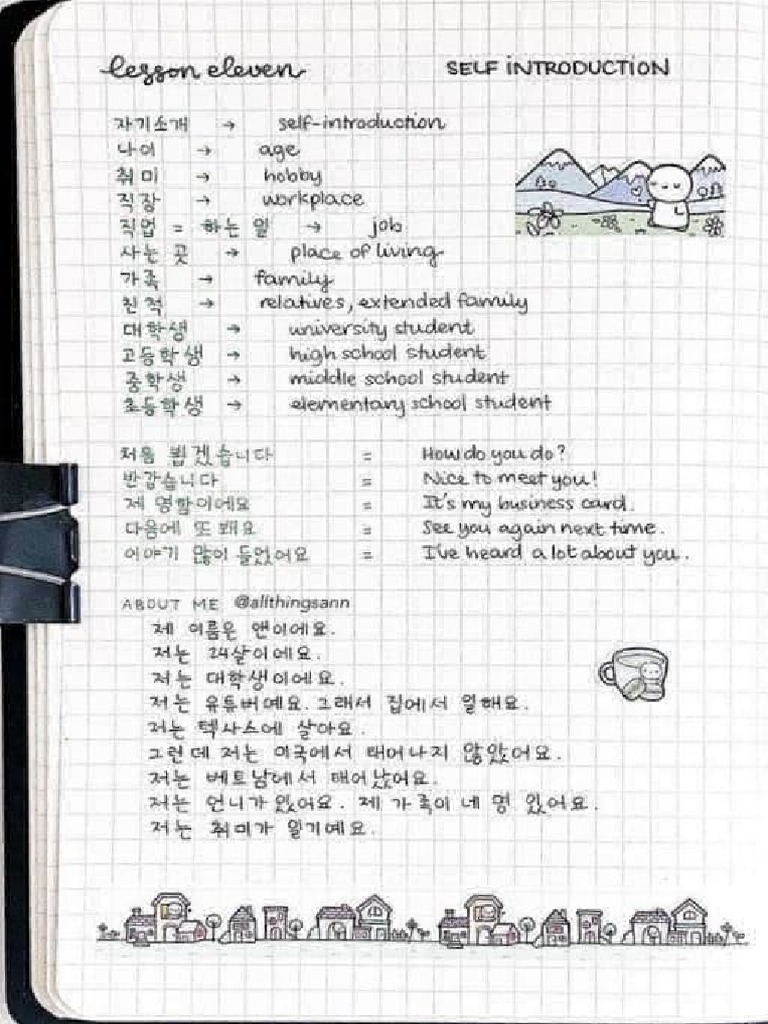 lesson eleven SELF INTRODUCTION
자기소개 → self-introduction
나이 → age
취미 → hobby
직장 → workplace
직업 = 하는 일 → job
사는 곳 → place of living
가족 → family
친척 → relatives, extended family
대학생 → university student
고등학생 → high school student
중학생 → middle school student
초등학생 → elementary school student
처음 뵙겠습니다 = How do you do?
반갑습니다 = Nice to meet you!
제 명함이에요 = It's my business card.
다음에 또 봬요 = See you again next time.
이야기 많이 들었어요 = I've heard a lot about you.
ABOUT ME @allthingsann
제 이름은 앤이에요.
저는 24살이에요.
저는 대학생이에요.
저는 유튜버예요. 그래서 집에서 일해요.
저는 텍사스에 살아요.
그런데 저는 미국에서 태어나지 않았어요.
저는 베트남에서 태어났어요.
저는 언니가 있어요. 제 가족이 네 명 있어요.
저는 취미가 일기예요.